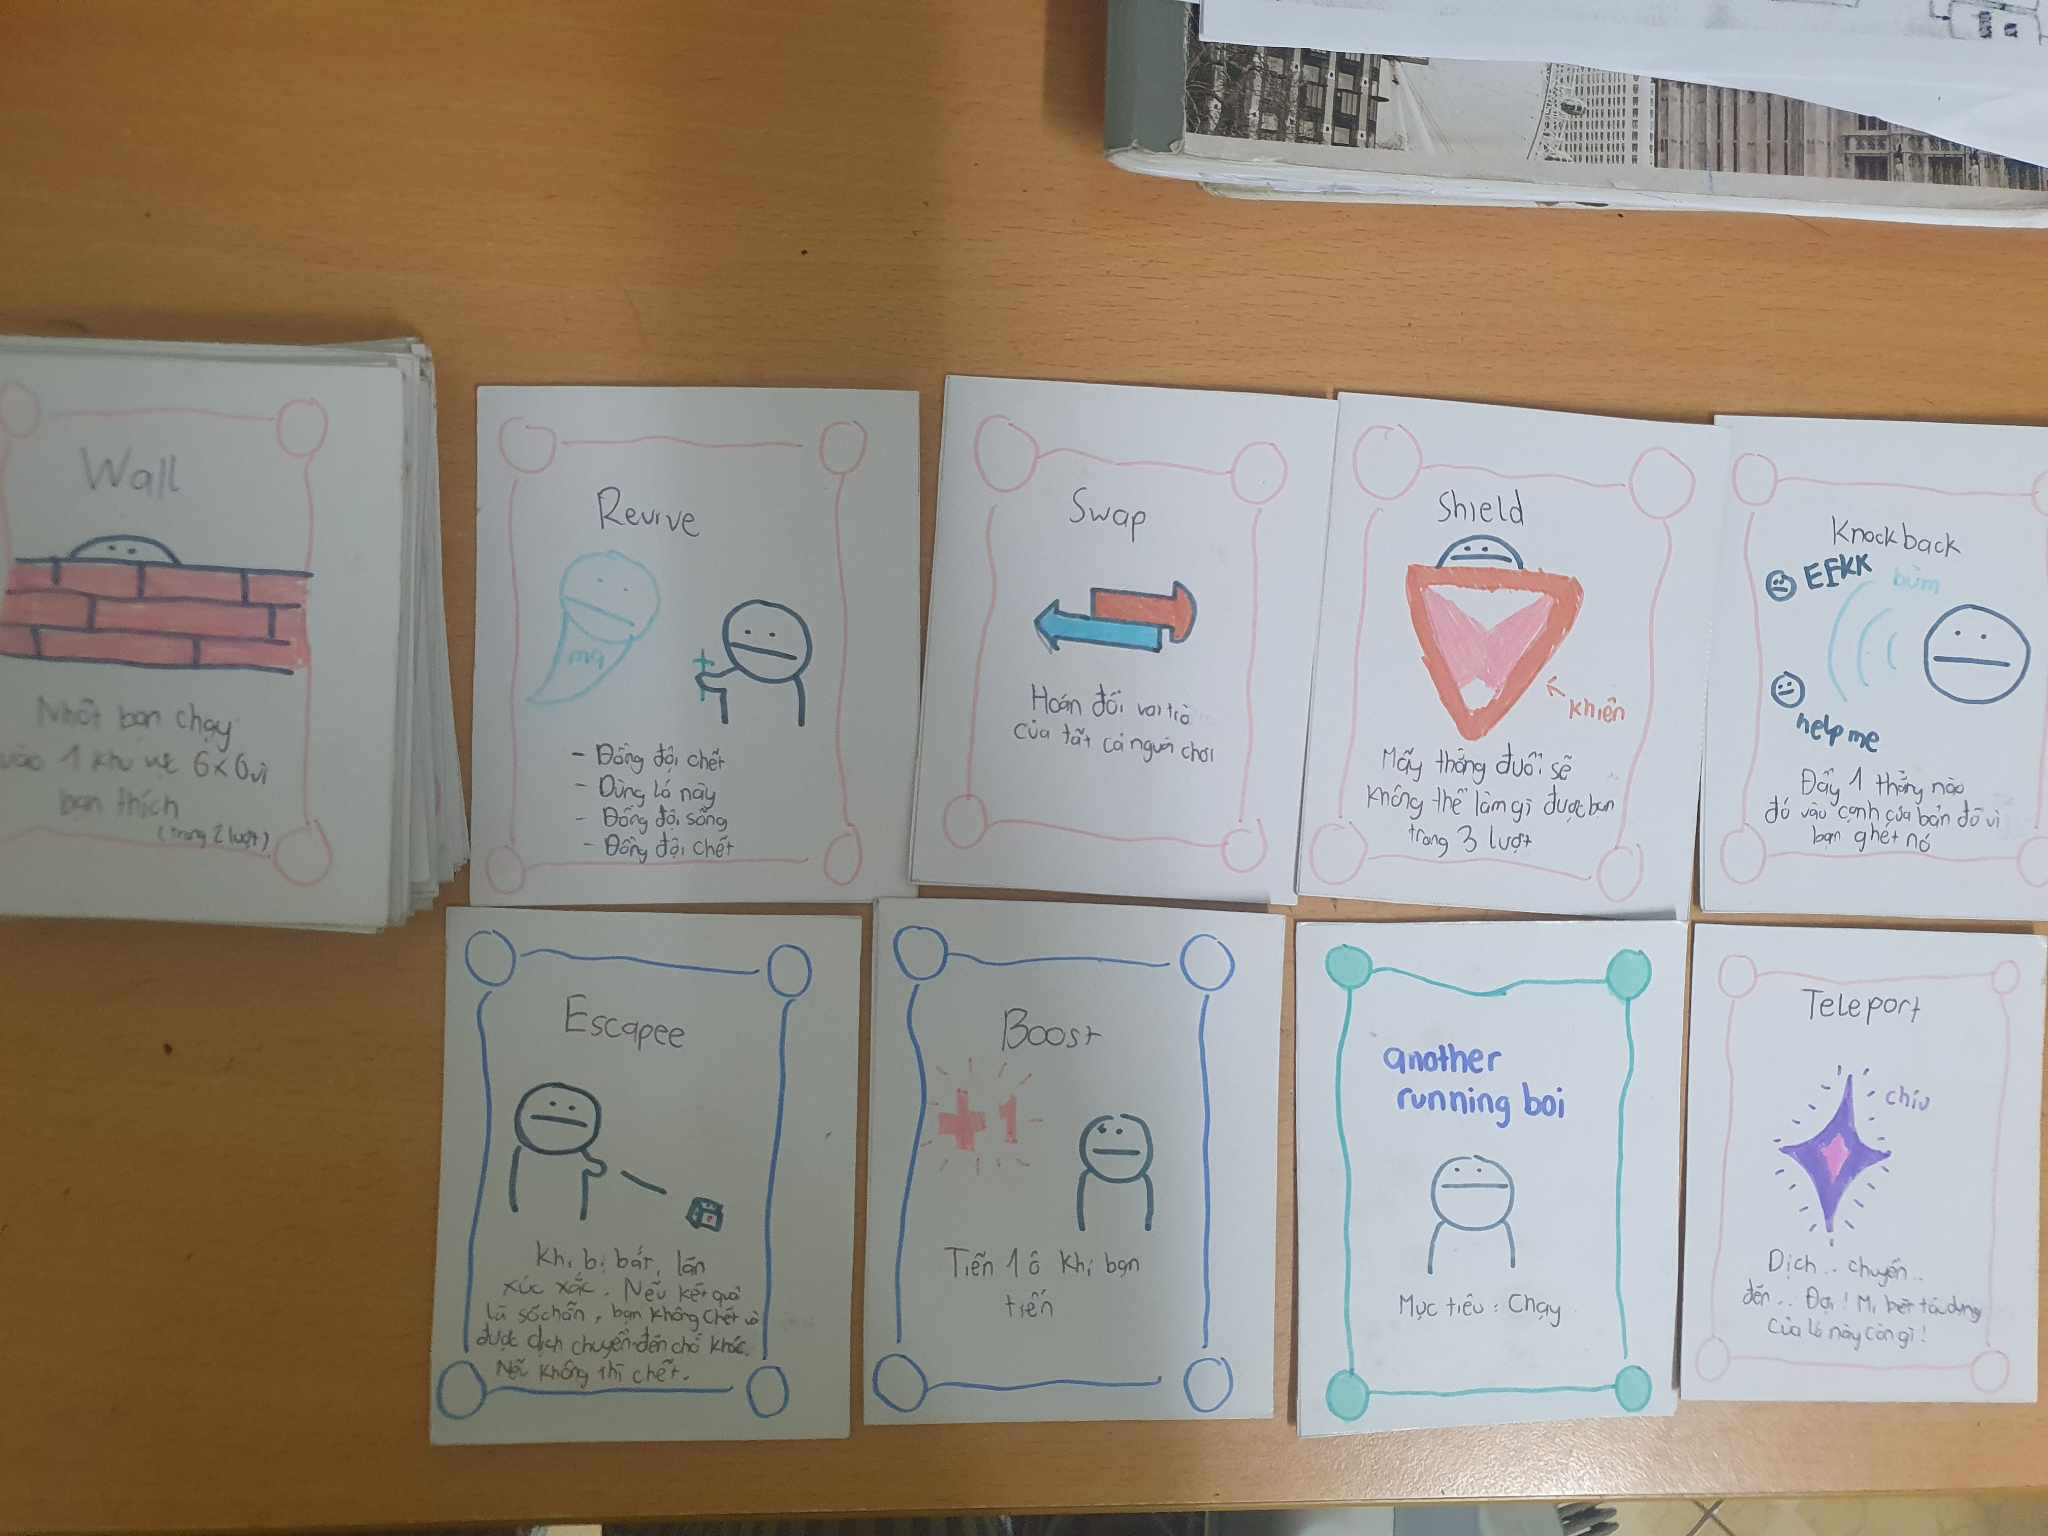 Wall
Nhốt bạn chạy
vào 1 khu vực 6x6 vì
bạn thích
(trong 2 lượt)
Revive
ma
- Đồng đội chết
- Dùng lá này
- Đồng đội sống
- Đồng đội chết
Swap
Hoán đổi vai trò
của tất cả người chơi
Shield
khiên
Mấy thằng đuổi sẽ
không thể làm gì được bạn
trong 3 lượt
Knockback
EEKK
bùm
help me
Đẩy 1 thằng nào
đó vào cạnh của bản đồ vì
bạn ghét nó
Escapee
Khi bị bắt, lăn
xúc xắc. Nếu kết quả
là số chẵn, bạn không chết và
được dịch chuyển đến chỗ khác.
Nếu không thì chết.
Boost
+1
Tiến 1 ô khi bạn
tiến
another
running boi
Mục tiêu: Chạy
Teleport
chíu
Dịch.. chuyển..
đến.. Đợi! Mi biết tác dụng
của lá này còn gì!